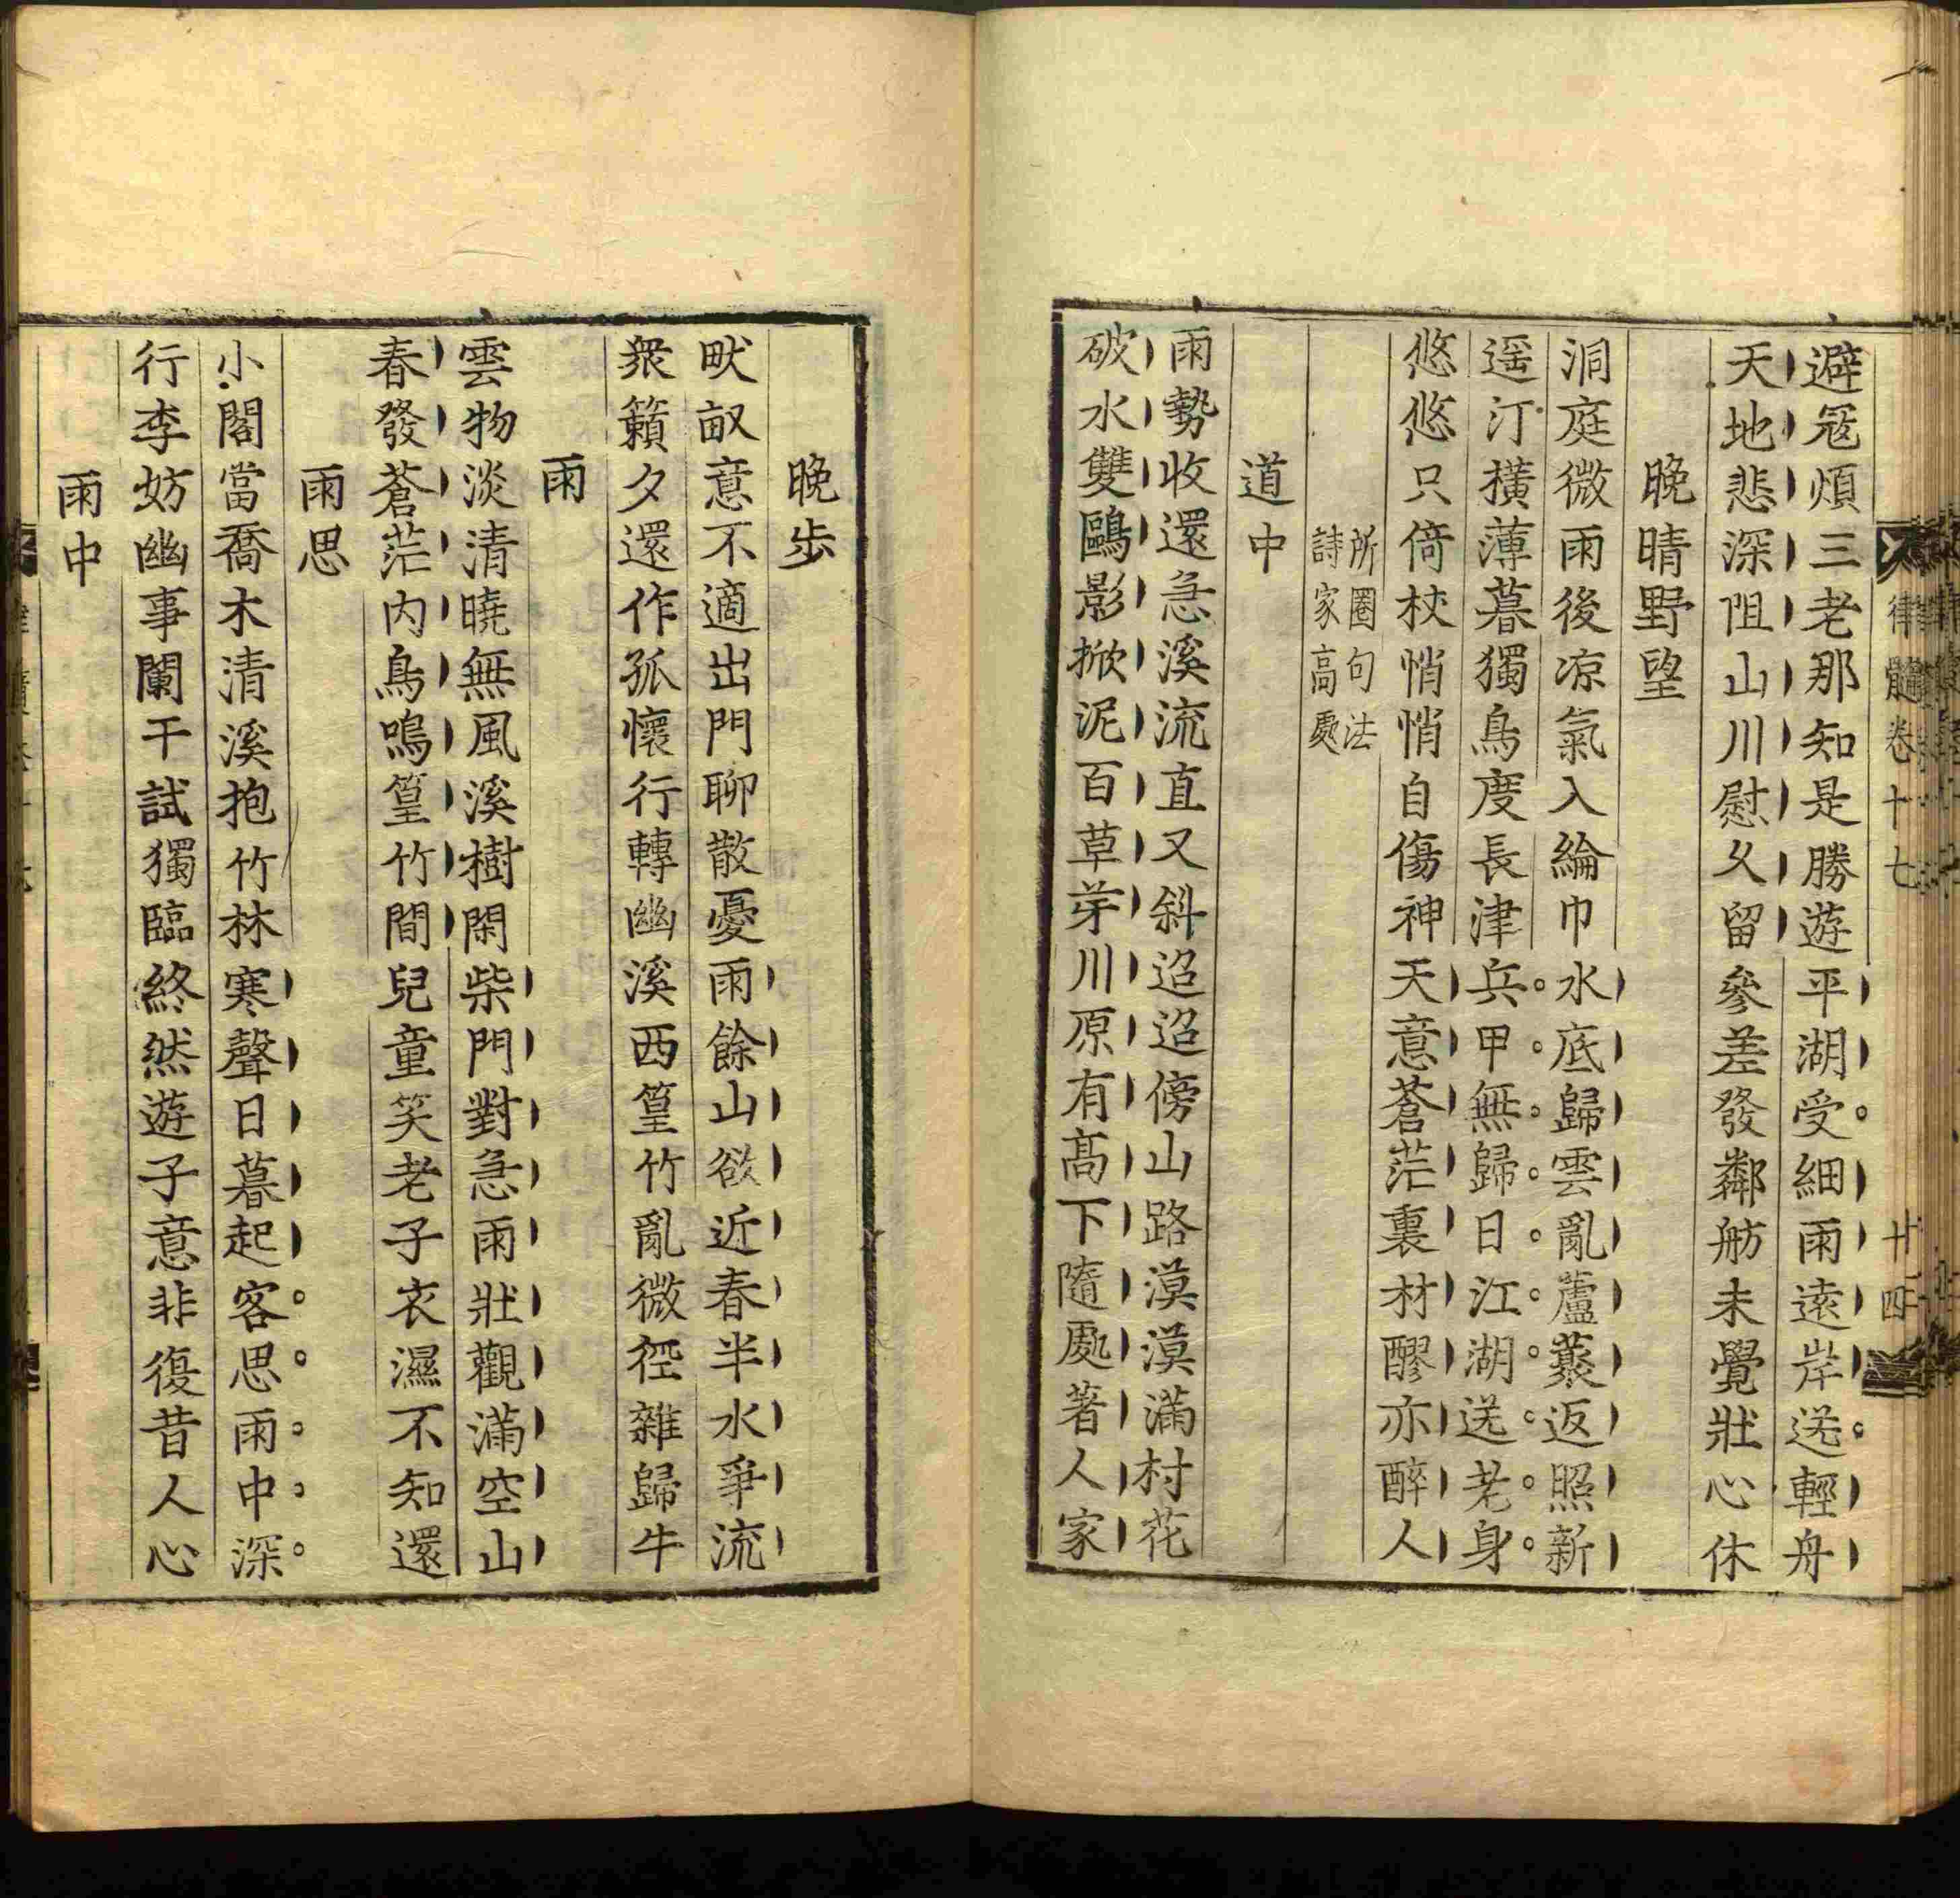 律髓卷十七
十四
避冦煩三老那知是勝遊平湖受細雨遠岸送輕舟
天地悲深阻山川慰久留參差發鄰舫未覺壯心休
晚晴野望
洞庭微雨後凉氣入綸巾水底歸雲亂蘆藂返照新
遥汀橫薄暮獨鳥度長津兵甲無歸日江湖送老身
悠悠只倚杖悄悄自傷神天意蒼茫裏材醪亦醉人
所圈句法
詩家高處
道中
雨勢收還急溪流直又斜迢迢傍山路漠漠滿村花
破水雙鷗影掀泥百草芽川原有高下隨處著人家
晚步
畎畝意不適出門聊散憂雨餘山欲近春半水爭流
衆籟夕還作孤懷行轉幽溪西篁竹亂微徑雜歸牛
雨
雲物淡清曉無風溪樹閑柴門對急雨壯觀滿空山
春發蒼茫內鳥鳴篁竹間兒童笑老子衣濕不知還
雨思
小閣當喬木清溪抱竹林寒聲日暮起客思雨中深
行李妨幽事闌干試獨臨終然遊子意非復昔人心
雨中